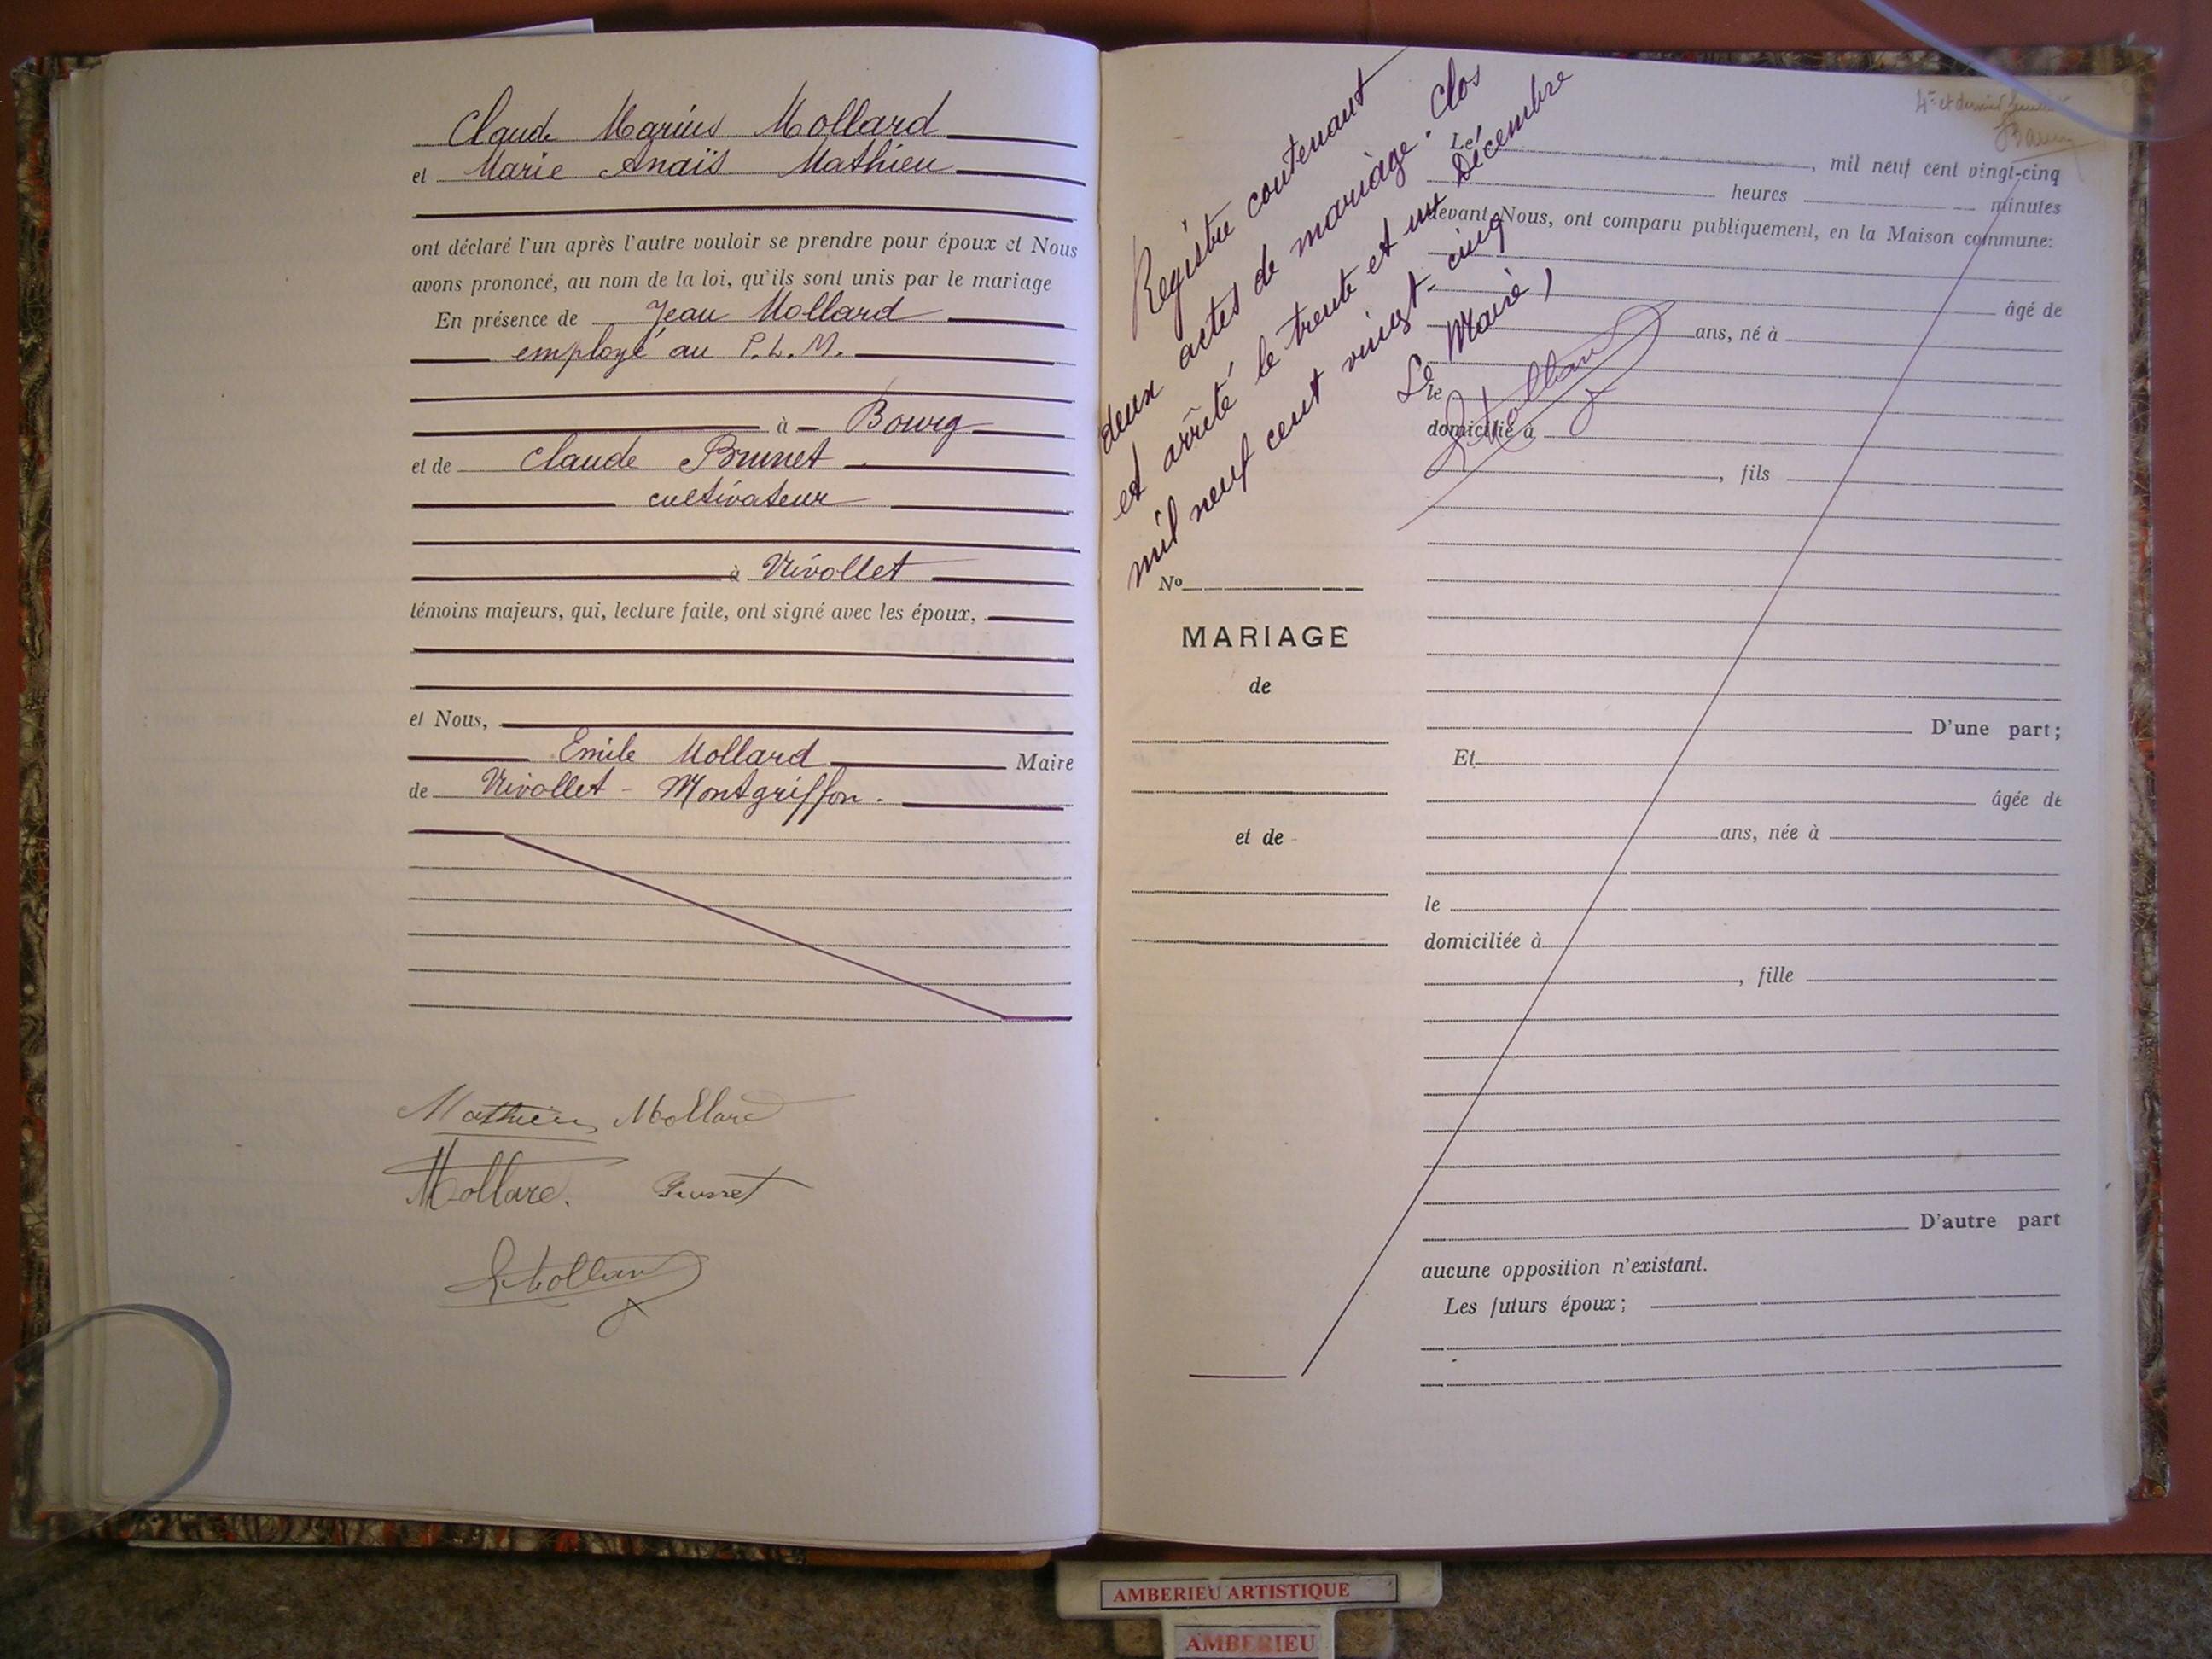 Claude Marius Mollard
et Marie Anaïs Mathieu
ont déclaré l'un après l'autre vouloir se prendre pour époux et Nous
avons prononcé, au nom de la loi, qu'ils sont unis par le mariage
En présence de Jean Mollard
employé au P.L.M.
à Bourg
et de Claude Brunet
cultivateur
à Nivollet
témoins majeurs, qui, lecture faite, ont signé avec les époux,
et Nous,
Emile Mollard Maire
de Nivollet - Montgriffon.
Mathieu Mollard
Mollard. Brunet
Mollard
Registre contenant
deux actes de mariage. Clos
et arrêté le trente et un Décembre
mil neuf cent vingt-cinq
Le Maire,
Mollard
4e et dernier
Le , mil neuf cent vingt-cinq
heures minutes
devant Nous, ont comparu publiquement, en la Maison commune:
âgé de
ans, né à
le
domicilié à
, fils
No
MARIAGE
de
et de
D'une part;
Et
âgée de
ans, née à
le
domiciliée à
, fille
D'autre part
aucune opposition n'existant.
Les futurs époux;
AMBERIEU ARTISTIQUE
AMBERIEU